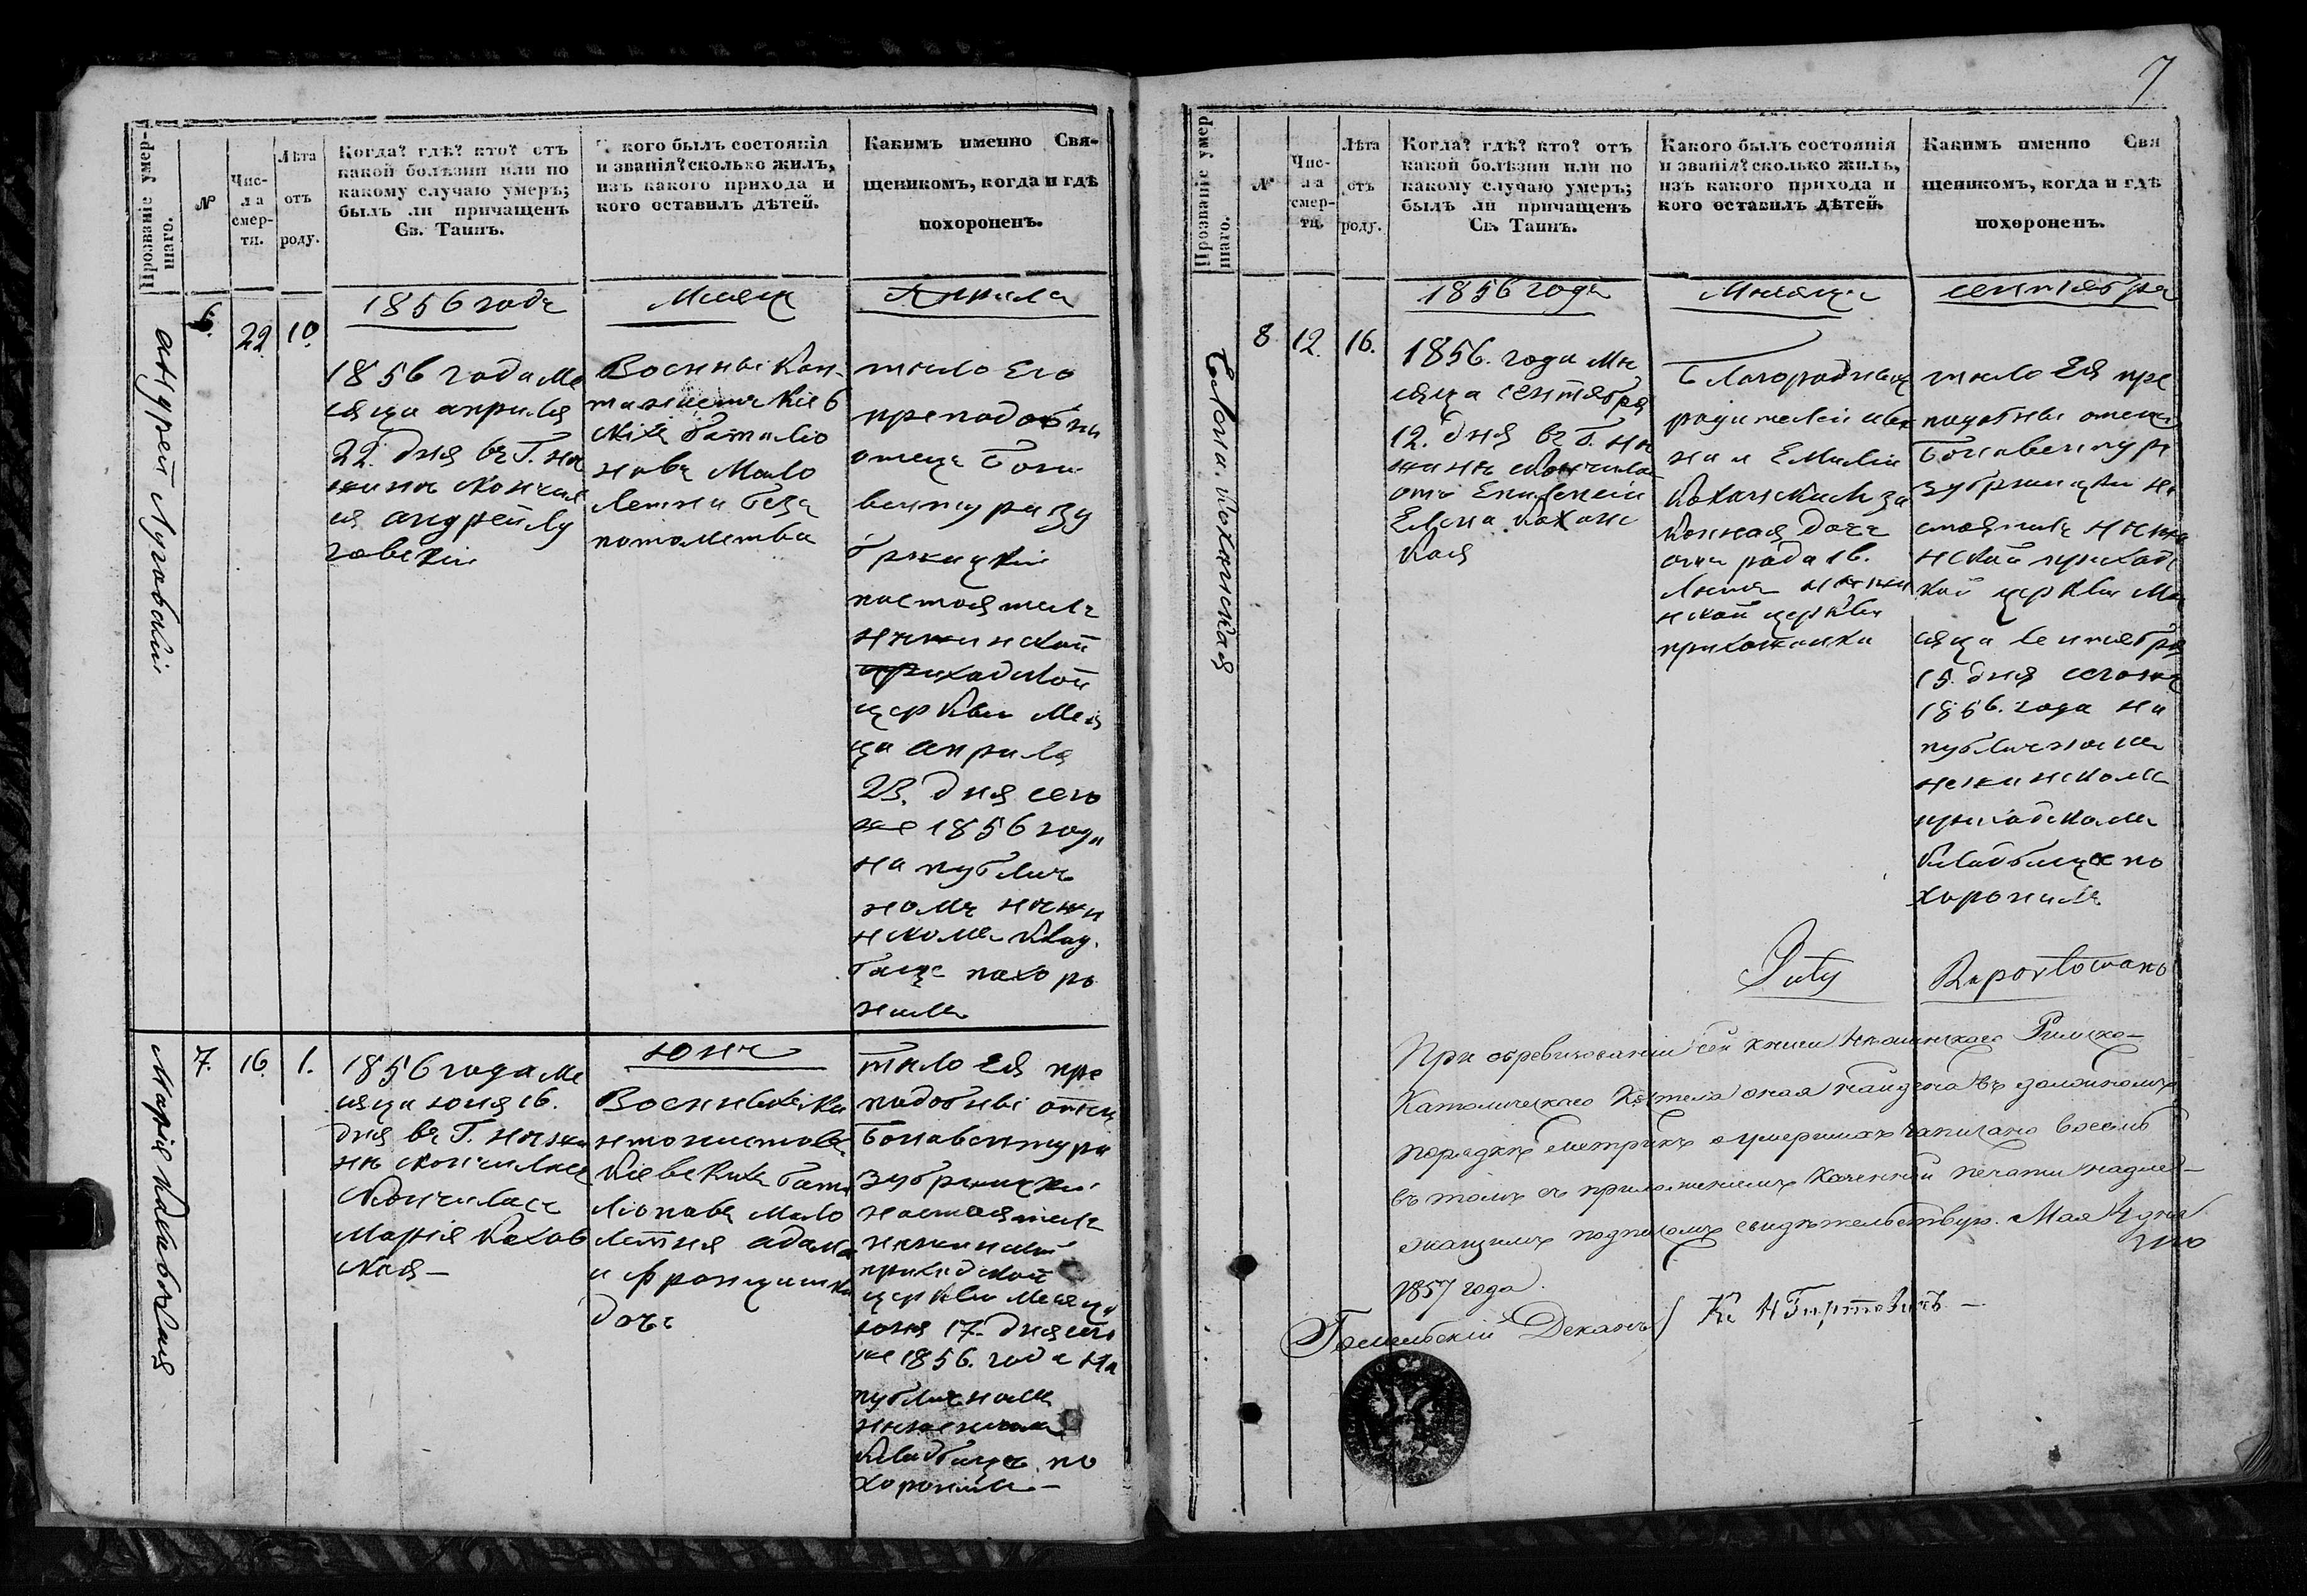 Прозваніе умер-
шаго.
№
Чис-
ла
смер-
ти.
Лѣта
отъ
роду.
Когда? гдѣ? кто? отъ
какой болѣзни или по
какому случаю умеръ;
былъ ли причащенъ
Св. Таинъ.
кого былъ состоянія
и званія? сколько жилъ,
изъ какого прихода и
кого оставилъ дѣтей.
Какимъ именно Свя-
щеникомъ, когда и гдѣ
похороненъ.
1856 года
Месяца
Апрыля
Андрей Луговскіи
6.
22.
10.
1856 года ме
сяца апрыля
22. дня въ Г. не
жинѣ скончал
ся андрей Лу
говскіи
Военныі Кан
тонистъ Кіев
скихъ баталіо
новъ Мало
летни безъ
потомства
тѣло Его
преподобны
отецъ Бона
вентура Зу
бржицкіи
настоятель
нежинскои
приходской
церкви меся
ца апрыля
23. дня сего
же 1856 года
на публич
номъ нежи
нскомъ клад
бище похоро
нилъ
Марія Каховская
7.
16.
1.
Юнь
1856 года ме
сяца юня 16.
дня въ Г. нежи
нѣ скончилась
скончилась
Марія Кахов
ская
Кіевскихъ бата
ліоновъ мало
летня адама
и францишки
дочь
тѣло Ея пре
подобныі отецъ
Бонавентура
Зубржицкіи
настоятель
нежинскои
приходской
церкви месяца
юня 17. дня сего
же 1856. года на
публичномъ
нежинскомъ
кладбищѣ по
хоронилъ
7
Прозваніе умер
шаго.
№
Чис-
ла
смер-
ти.
Лѣта
отъ
роду.
Когда? гдѣ? кто? отъ
какой болѣзни или по
какому случаю умеръ;
былъ ли причащенъ
Св. Таинъ.
Какого былъ состоянія
и званія? сколько жилъ,
изъ какого прихода и
кого оставилъ дѣтей.
Какимъ именно Свя
щеникомъ, когда и гдѣ
похороненъ.
1856 года
Месяца
сентября
Елена Коханская
8
12.
16.
1856. года ме
сяца сентября
12. дня въ Г. не
жинѣ скончила
Елена Кохан
ская
Благородныхъ
родителей
на и Емиліи
Коханскихъ за
конная дочь
отъ рода 16.
летня нежи
нской церкви
прихожанка
тѣло Ея пре
подобны отецъ
Бонавентура
Зубржицки на
стоятель нежи
нской приход
кой церкви ме
сяца сентября
15. дня сегоже
1856. года на
публичномъ
нежинскомъ
приходскомъ
кладбище по
хоронилъ
Raportowano
При обревизованіи сей книги Нѣжинскаго Римско-
Католическаго Костела оная найдена въ должномъ
порядкѣ метрикъ о умершихъ записано восемь
въ томъ съ приложеніемъ казенной печати надлеж-
ащимъ подписомъ свидѣтельствую. Мая 4 дня
1857 года.
Гомельскій Деканъ